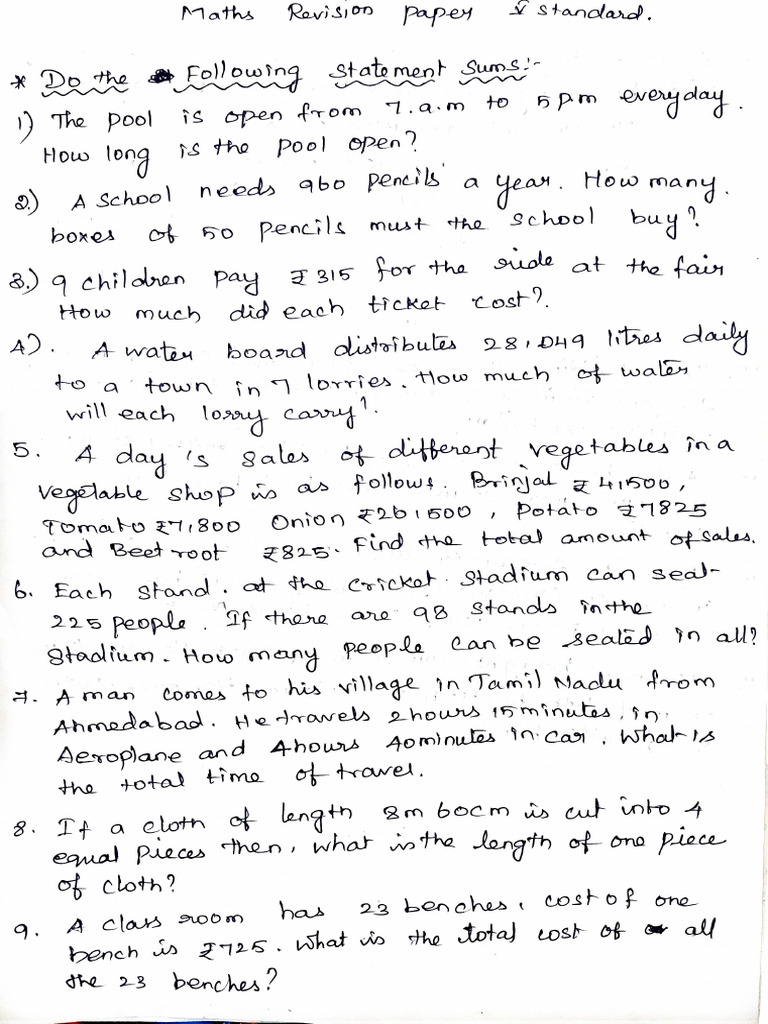 Maths Revision paper V standard.
* Do the Following statement sums:-
1) The pool is open from 7.a.m to 5pm everyday.
How long is the pool open?
2.) A school needs 960 pencils a year. How many.
boxes of 50 pencils must the school buy?
3.) 9 children pay ₹315 for the ride at the fair
How much did each ticket cost?.
4). A water board distributes 28,049 litres daily
to a town in 7 lorries. How much of water
will each lorry carry?.
5. A day's sales of different vegetables in a
vegetable shop is as follows. Brinjal ₹41500,
Tomato ₹71,800 Onion ₹261500, Potato ₹7825
and Beetroot ₹825. Find the total amount of sales.
6. Each stand. at the cricket stadium can seat-
225 people. If there are 98 stands in the
stadium. How many people can be seated in all?
7. A man comes to his village in Tamil Nadu from
Ahmedabad. He travels 2hours 15minutes, in
Aeroplane and 4hours 40minutes in car. What is
the total time of travel.
8. If a cloth of length 8m 60cm is cut into 4
equal pieces then, what is the length of one piece
of cloth?
9. A class room has 23 benches, cost of one
bench is ₹725. What is the total cost of all
the 23 benches?